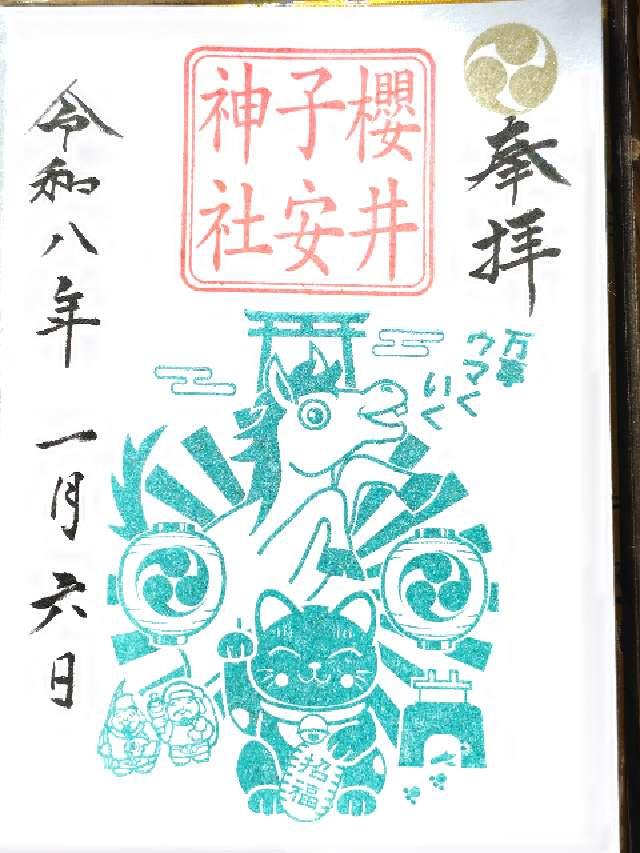 奉拝
櫻井
子安
神社
令和八年 一月六日
万事
ウマく
いく
招福